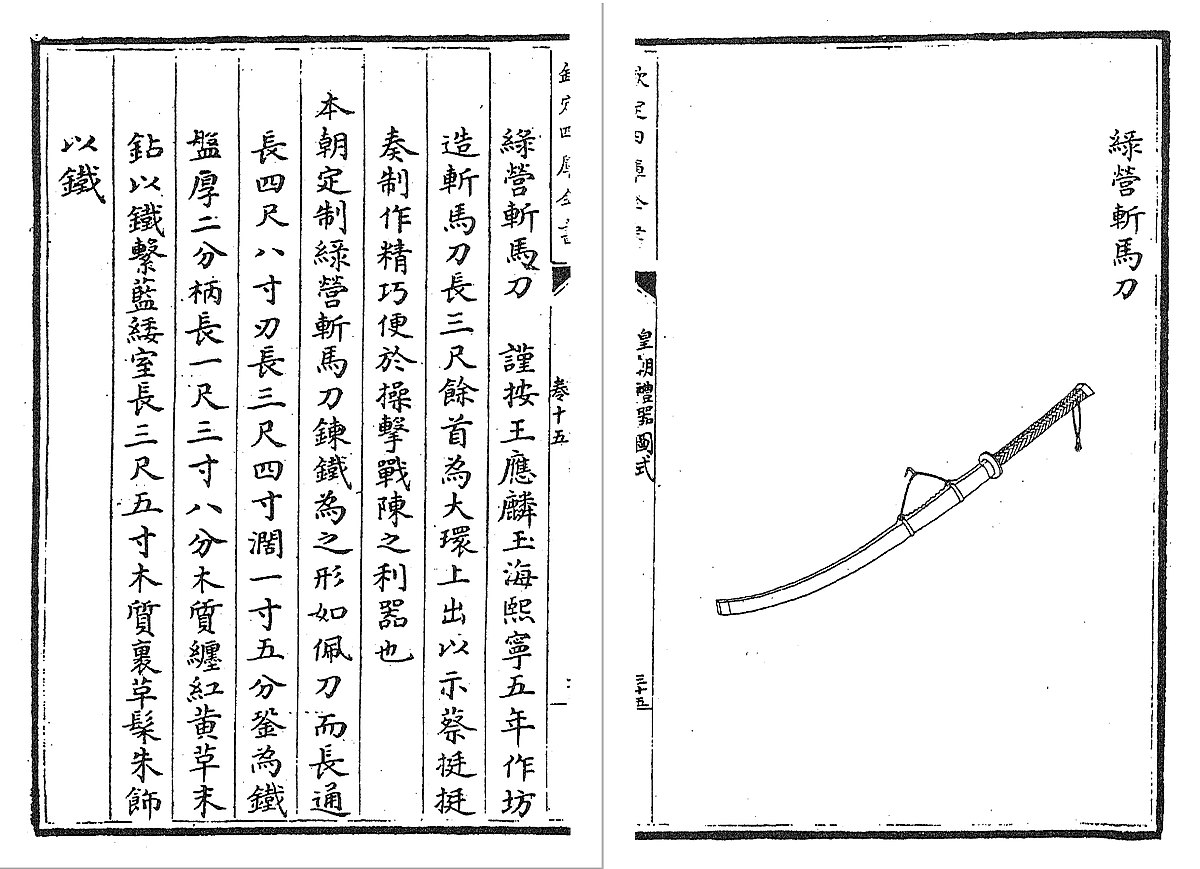 綠營斬馬刀
欽定四庫全書
皇朝禮器圖式
三十五
欽定四庫全書
卷十五
綠營斬馬刀　謹按王應麟玉海熙寧五年作坊
造斬馬刀長三尺餘首為大環上出以示蔡挺挺
奏制作精巧便於操擊戰陳之利器也
本朝定制綠營斬馬刀鍊鐵為之形如佩刀而長通
長四尺八寸刃長三尺四寸濶一寸五分銎為鐵
盤厚二分柄長一尺三寸八分木質纏紅黄草末
鉆以鐵繫藍緌室長三尺五寸木質裹草髹朱飾
以鐵